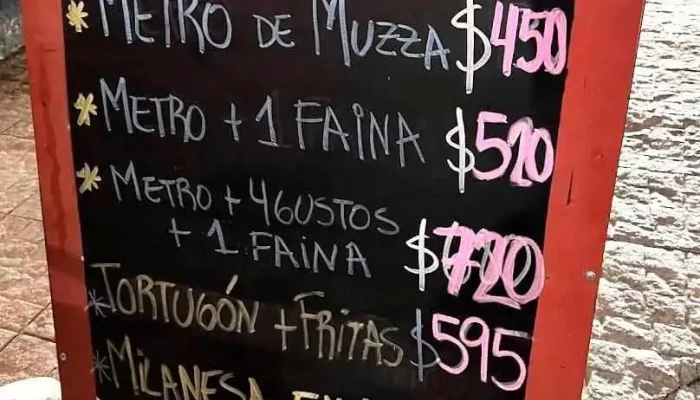 * METRO DE MUZZA $450
* METRO + 1 FAINA $510
* METRO + 4 GUSTOS
+ 1 FAINA $720
* TORTUGÓN + FRITAS $595
* MILANESA